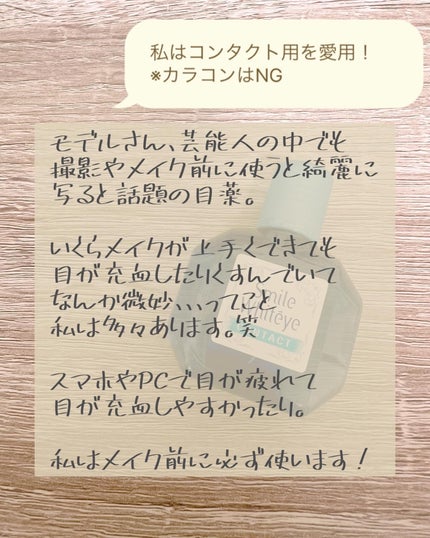 私はコンタクト用を愛用！
※カラコンはNG
モデルさん、芸能人の中でも
撮影やメイク前に使うと綺麗に
写ると話題の目薬。
いくらメイクが上手くできても
目が充血したりくすんでいて
なんか微妙、、、ってこと
私は多々あります。笑
スマホやPCで目が疲れて
目が充血しやすかったり。
私はメイク前に必ず使います！
Smile
Whiteye
CONTACT